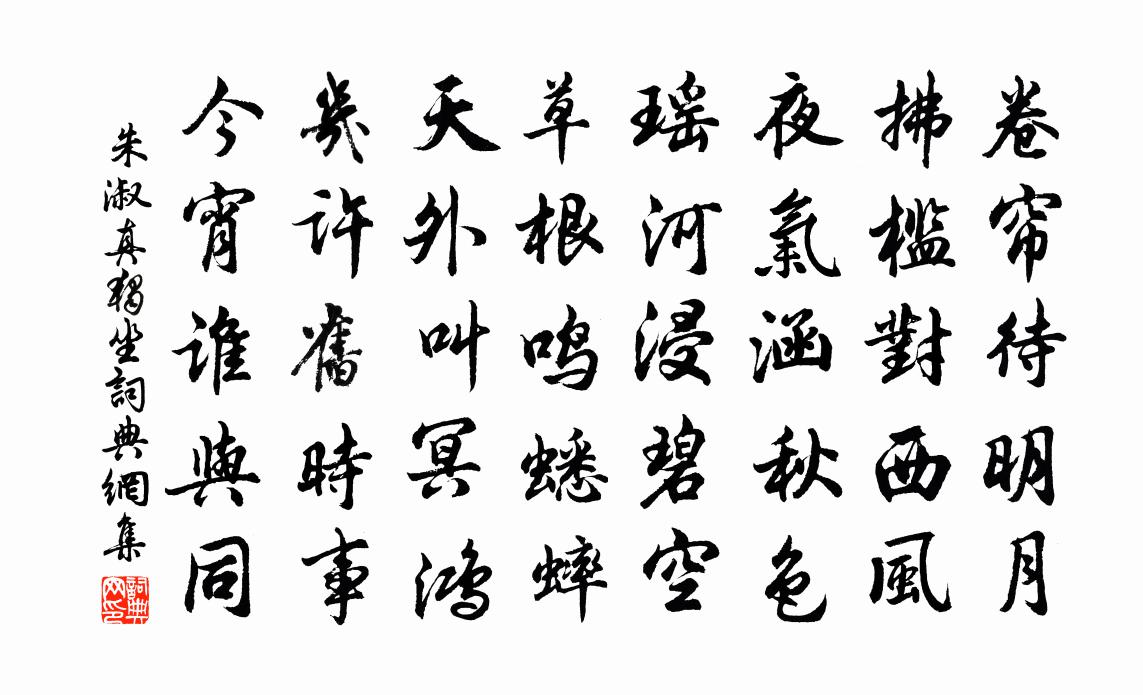 卷帘待明月
拂檻對西風
夜氣涵秋色
瑶河浸碧空
草根鸣蟋蟀
天外叫冥鸿
幾許舊時事
今宵誰與同
朱淑真獨坐詞典網集
詞典网印